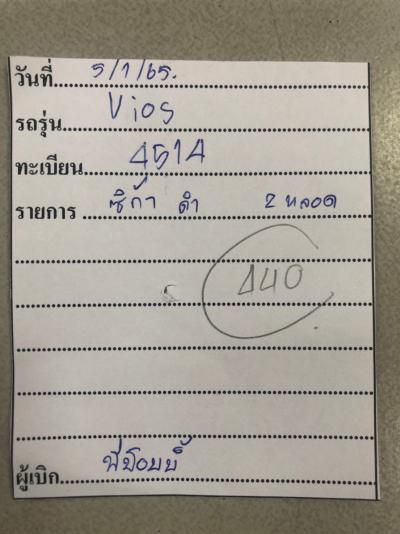 วันที่ 5/1/65.
รถรุ่น Vios
ทะเบียน 4514
รายการ ซิก้า ดำ 2 หลอด
440
ผู้เบิก